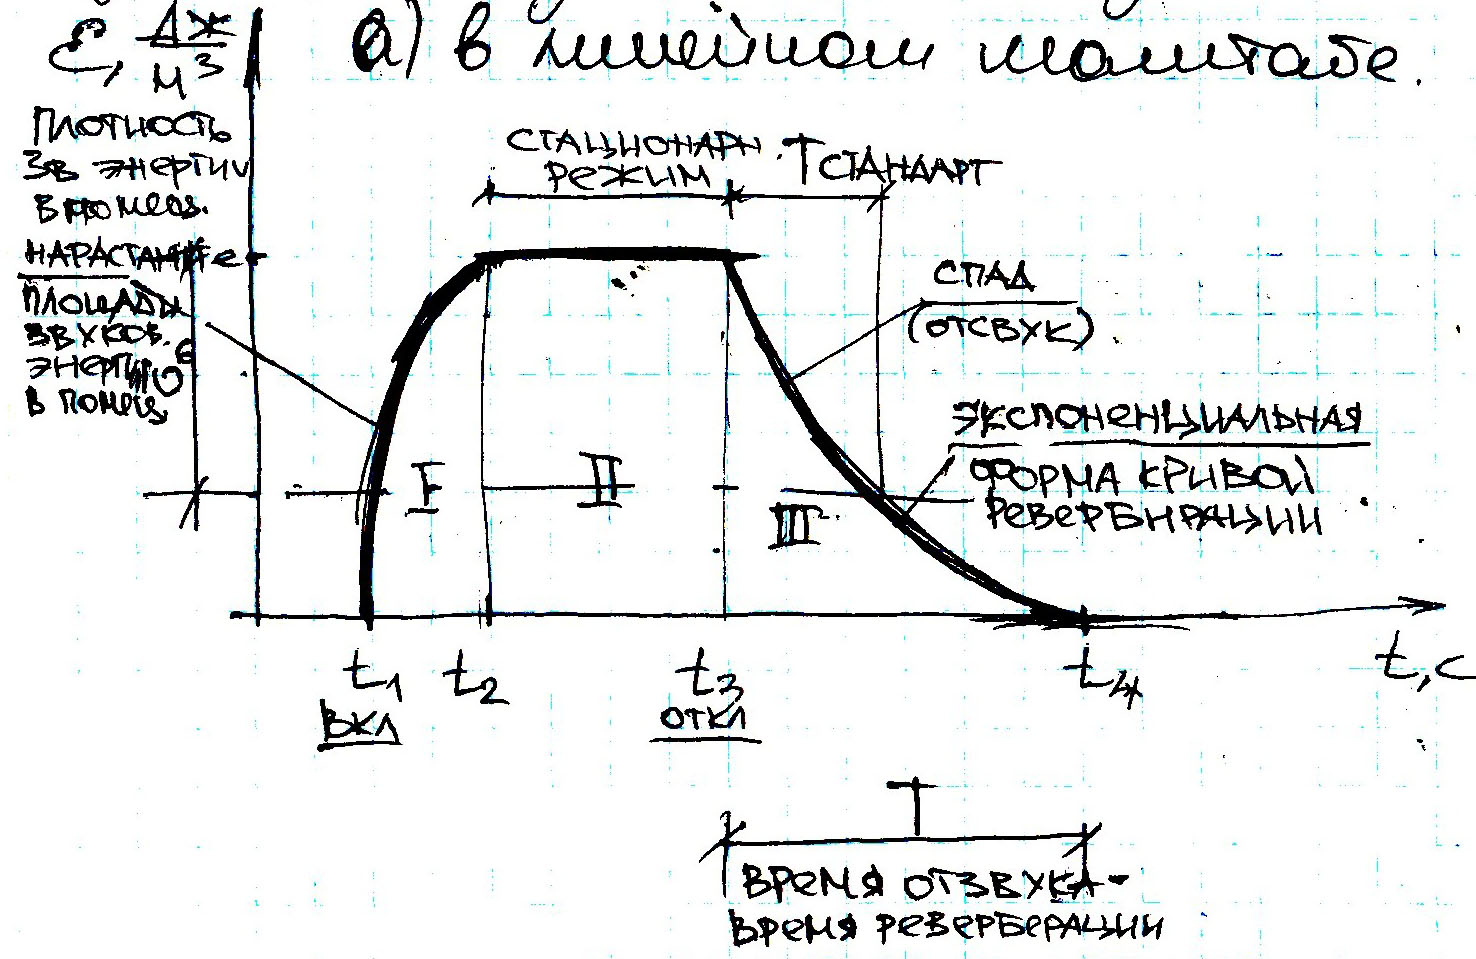 Ɛ, Дж/м³
а) в линейном масштабе.
ПЛОТНОСТЬ
ЗВ ЭНЕРГИИ
В ПОМЕЩ.
НАРАСТАНИЕ
ПЛОЩАДЫ
ЗВУКОВ.
ЭНЕРГИИ
В ПОМЕЩ.
СТАЦИОНАРН.
РЕЖИМ
T СТАНДАРТ
СПАД
(ОТСВУК)
ЭКСПОНЕНЦИАЛЬНАЯ
ФОРМА КРИВОЙ
РЕВЕРБИРАЦИИ
I
II
III
t1
t2
t3
t4
t, c
ВКЛ
ОТКЛ
T
ВРЕМЯ ОТЗВУКА-
ВРЕМЯ РЕВЕРБЕРАЦИИ